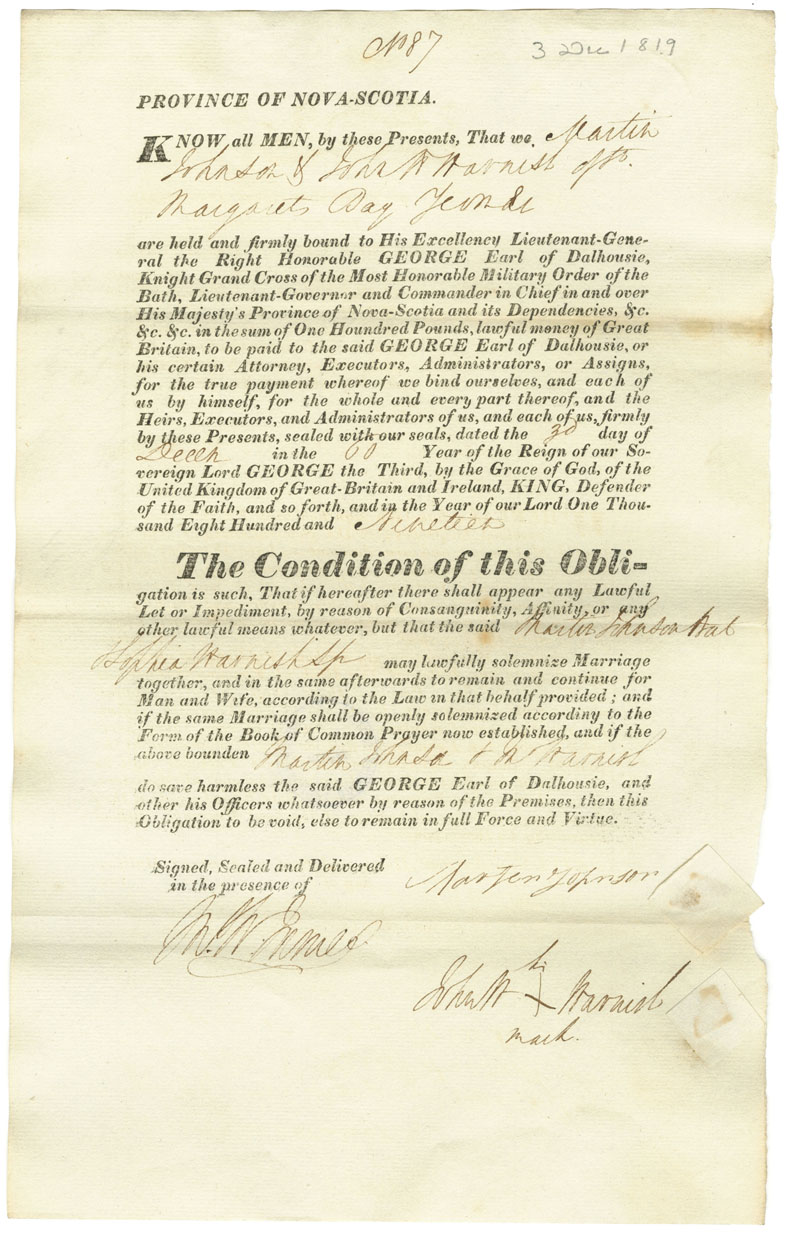 No 87
3 Dec 1819
PROVINCE OF NOVA-SCOTIA.
KNOW, all MEN, by these Presents, That we, Martin
Johnson & John W Warnish of St.
Margarets Bay
are held and firmly bound to His Excellency Lieutenant-Gene-
ral the Right Honorable GEORGE Earl of Dalhousie,
Knight Grand Cross of the Most Honorable Military Order of the
Bath, Lieutenant-Governor and Commander in Chief in and over
His Majesty's Province of Nova-Scotia and its Dependencies, &c.
&c. &c. in the sum of One Houndred Pounds, lawful money of Great
Britain, to be paid to the said GEORGE Earl of Dalhousie, or
his certain Attorney, Executors, Administrators, or Assigns,
for the true payment whereof we bind ourselves, and each of
us by himself, for the whole and every part thereof, and the
Heirs, Executors, and Administrators of us, and each of us, firmly
by these Presents, sealed with our seals, dated the 3d day of
Decer in the 60 Year of the Reign of our So-
vereign Lord GEORGE the Third, by the Grace of God, of the
United Kingdom of Great-Britain and Ireland, KING, Defender
of the Faith, and so forth, and in the Year of our Lord One Thou-
sand Eight Hundred and Nineteen
The Condition of this Obli-
gation is such, That if hereafter there shall appear any Lawful
Let or Impediment, by reason of Consanguinity, Affinity, or any
other lawful means whatever, but that the said Martin Johnson
Sophia Warnish Sp may lawfully solemnize Marriage
together, and in the same afterwards to remain and continue for
Man and Wife, according to the Law in that behalf provided; and
if the same Marriage shall be openly solemnized according to the
Form of the Book of Common Prayer now established, and if the
above bounden Martin Johnson & W Warnish
do save harmless the said GEORGE Earl of Dalhousie, and
other his Officers whatsoever by reason of the Premises, then this
Obligation to be void, else to remain in full Force and Virtue.
Signed, Sealed and Delivered
in the presence of
Marten Johnson
his
John W X Warnish
mark.